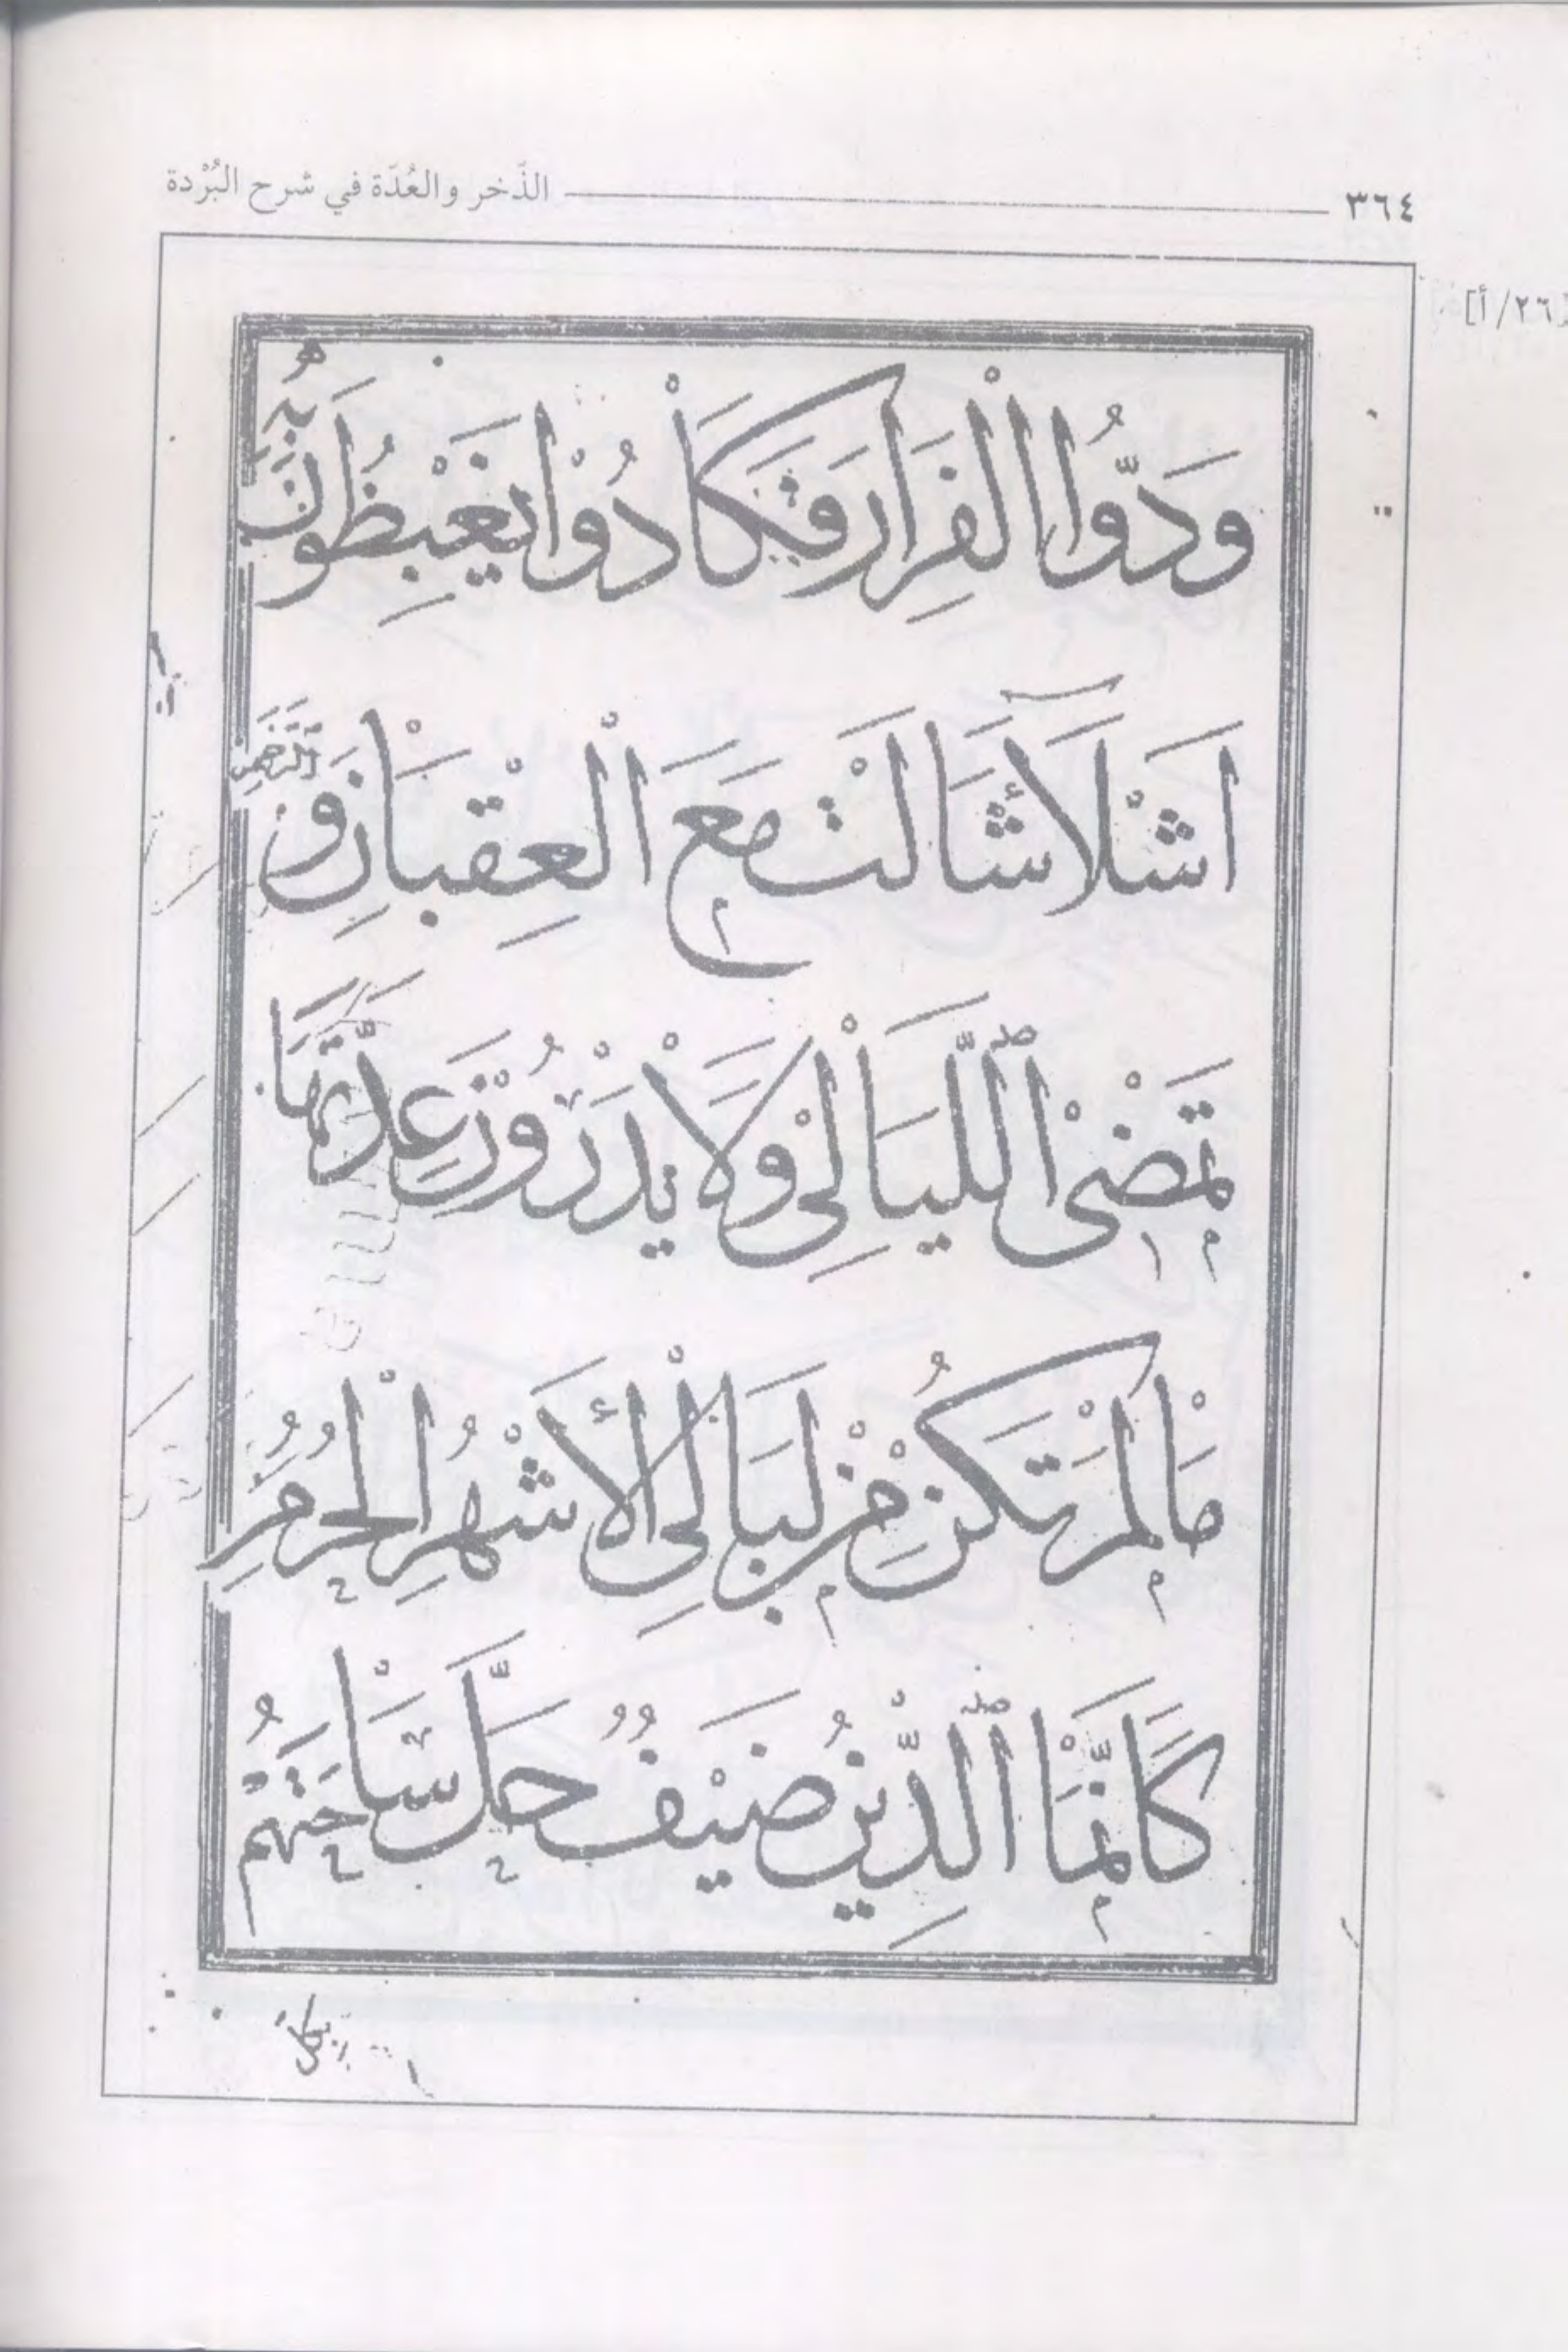 ٣٦٤ الذّخر والعُدّة في شرح البُرْدة
[٢٦/أ]
وَدُّوا الْفِرَارَ فَكَادُوْا يَغْبِطُونَ بِهٖ
اَشْلَآءَ شَالَتْ مَعَ الْعِقْبَانِ وَالرَّخَمِ
تَمْضِى اللَّيَالِى وَلَا يَدْرُوْنَ عِدَّتَهَا
مَا لَمْ تَكُنْ مِنْ لَيَالِى الْأَشْهُرِ الْحُرُمِ
كَاَنَّمَا الدِّيْنُ ضَيْفٌ حَلَّ سَاحَتَهُمْ
بكل